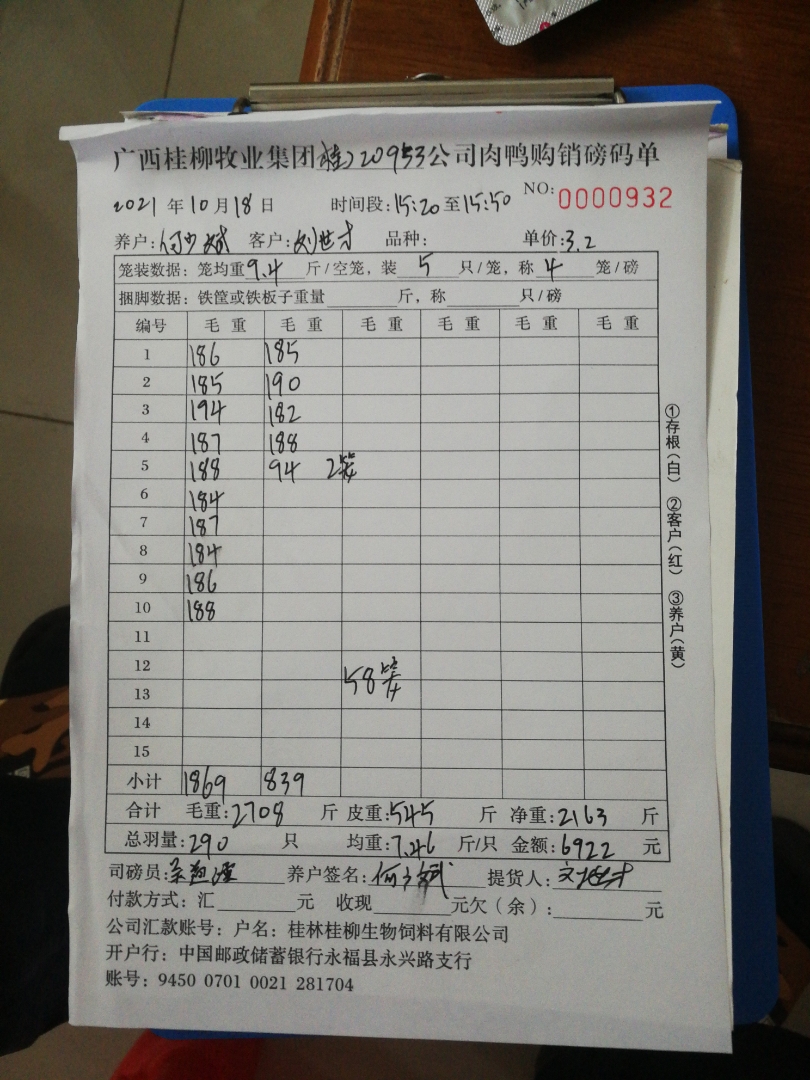 广西桂柳牧业集团桂220953公司肉鸭购销磅码单
2021 年 10 月 18 日 时间段:15:20 至 15:50 NO: 0000932
养户:何少斌 客户: 品种: 单价:3.2
笼装数据: 笼均重 9.4 斤/空笼，装 5 只/笼，称 4 笼/磅
捆脚数据: 铁筐或铁板子重量 斤，称 只/磅
编号 毛重 毛重 毛重 毛重 毛重 毛重
1 186 185
2 185 190
3 194 182
4 187 188
5 188 94 2笼
6 184
7 187
8 184
9 186
10 188
11
12
58笼
13
14
15
小计 1869 839
合计 毛重:2708 斤 皮重:545 斤 净重:2163 斤
总羽量:290 只 均重:7.46 斤/只 金额:6922 元
司磅员: 养户签名:何少斌 提货人:
付款方式:汇 元 收现 元欠(余): 元
公司汇款账号: 户名: 桂林桂柳生物饲料有限公司
开户行: 中国邮政储蓄银行永福县永兴路支行
账号: 9450 0701 0021 281704
①存根(白) ②客户(红) ③养户(黄)